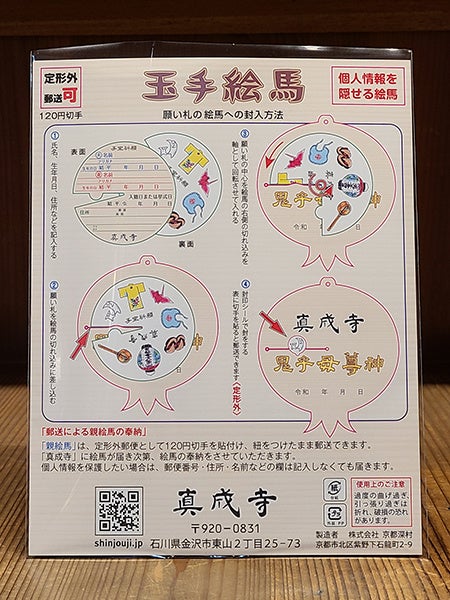 定形外
郵送可
120円切手
玉手絵馬
願い札の絵馬への封入方法
個人情報を
隠せる絵馬
①氏名、生年月日、住所などを記入する
表面
子宝祈願
名前
フリガナ
生年月日 昭・平 年 月 日
名前
フリガナ
生年月日 昭・平 年 月 日
入籍日または挙式日
昭・平・令 年 月 日
住所
真成寺
裏面
②願い札を絵馬の切れ込みに差し込む
子宝祈願
真成寺
③願い札の中心を絵馬の右側の切れ込みを
軸として回転させて入れる
鬼子
神
令和 日
④封印シールで封をする
表に切手を貼ると郵送できます。(定形外)
真成寺
鬼子母神
令和 年 月 日
「郵送による親絵馬の奉納」
「親絵馬」は、定形外郵便として120円切手を貼付け、紐をつけたまま郵送できます。
「真成寺」に絵馬が届き次第、絵馬の奉納をさせていただきます。
個人情報を保護したい場合は、郵便番号・住所・名前などの欄は記入しなくても届きます。
shinjouji.jp
真成寺
〒920-0831
石川県金沢市東山2丁目25-73
紙
プラ
外装:PP
使用上のご注意
過度の曲げ過ぎ、
引っ張り過ぎは
折れ、破損の恐れ
があります。
製造者 株式会社 京都深村
京都市北区紫野下石龍町2-9